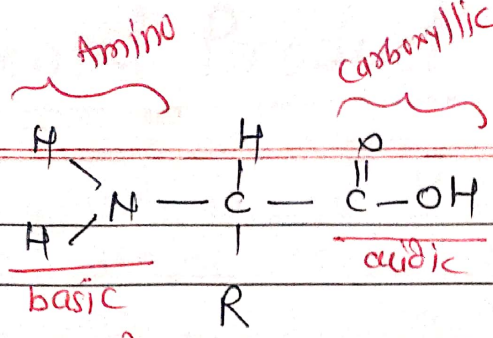 Amino carboxyllic
H H O
H N — C — C — OH
basic R acidic